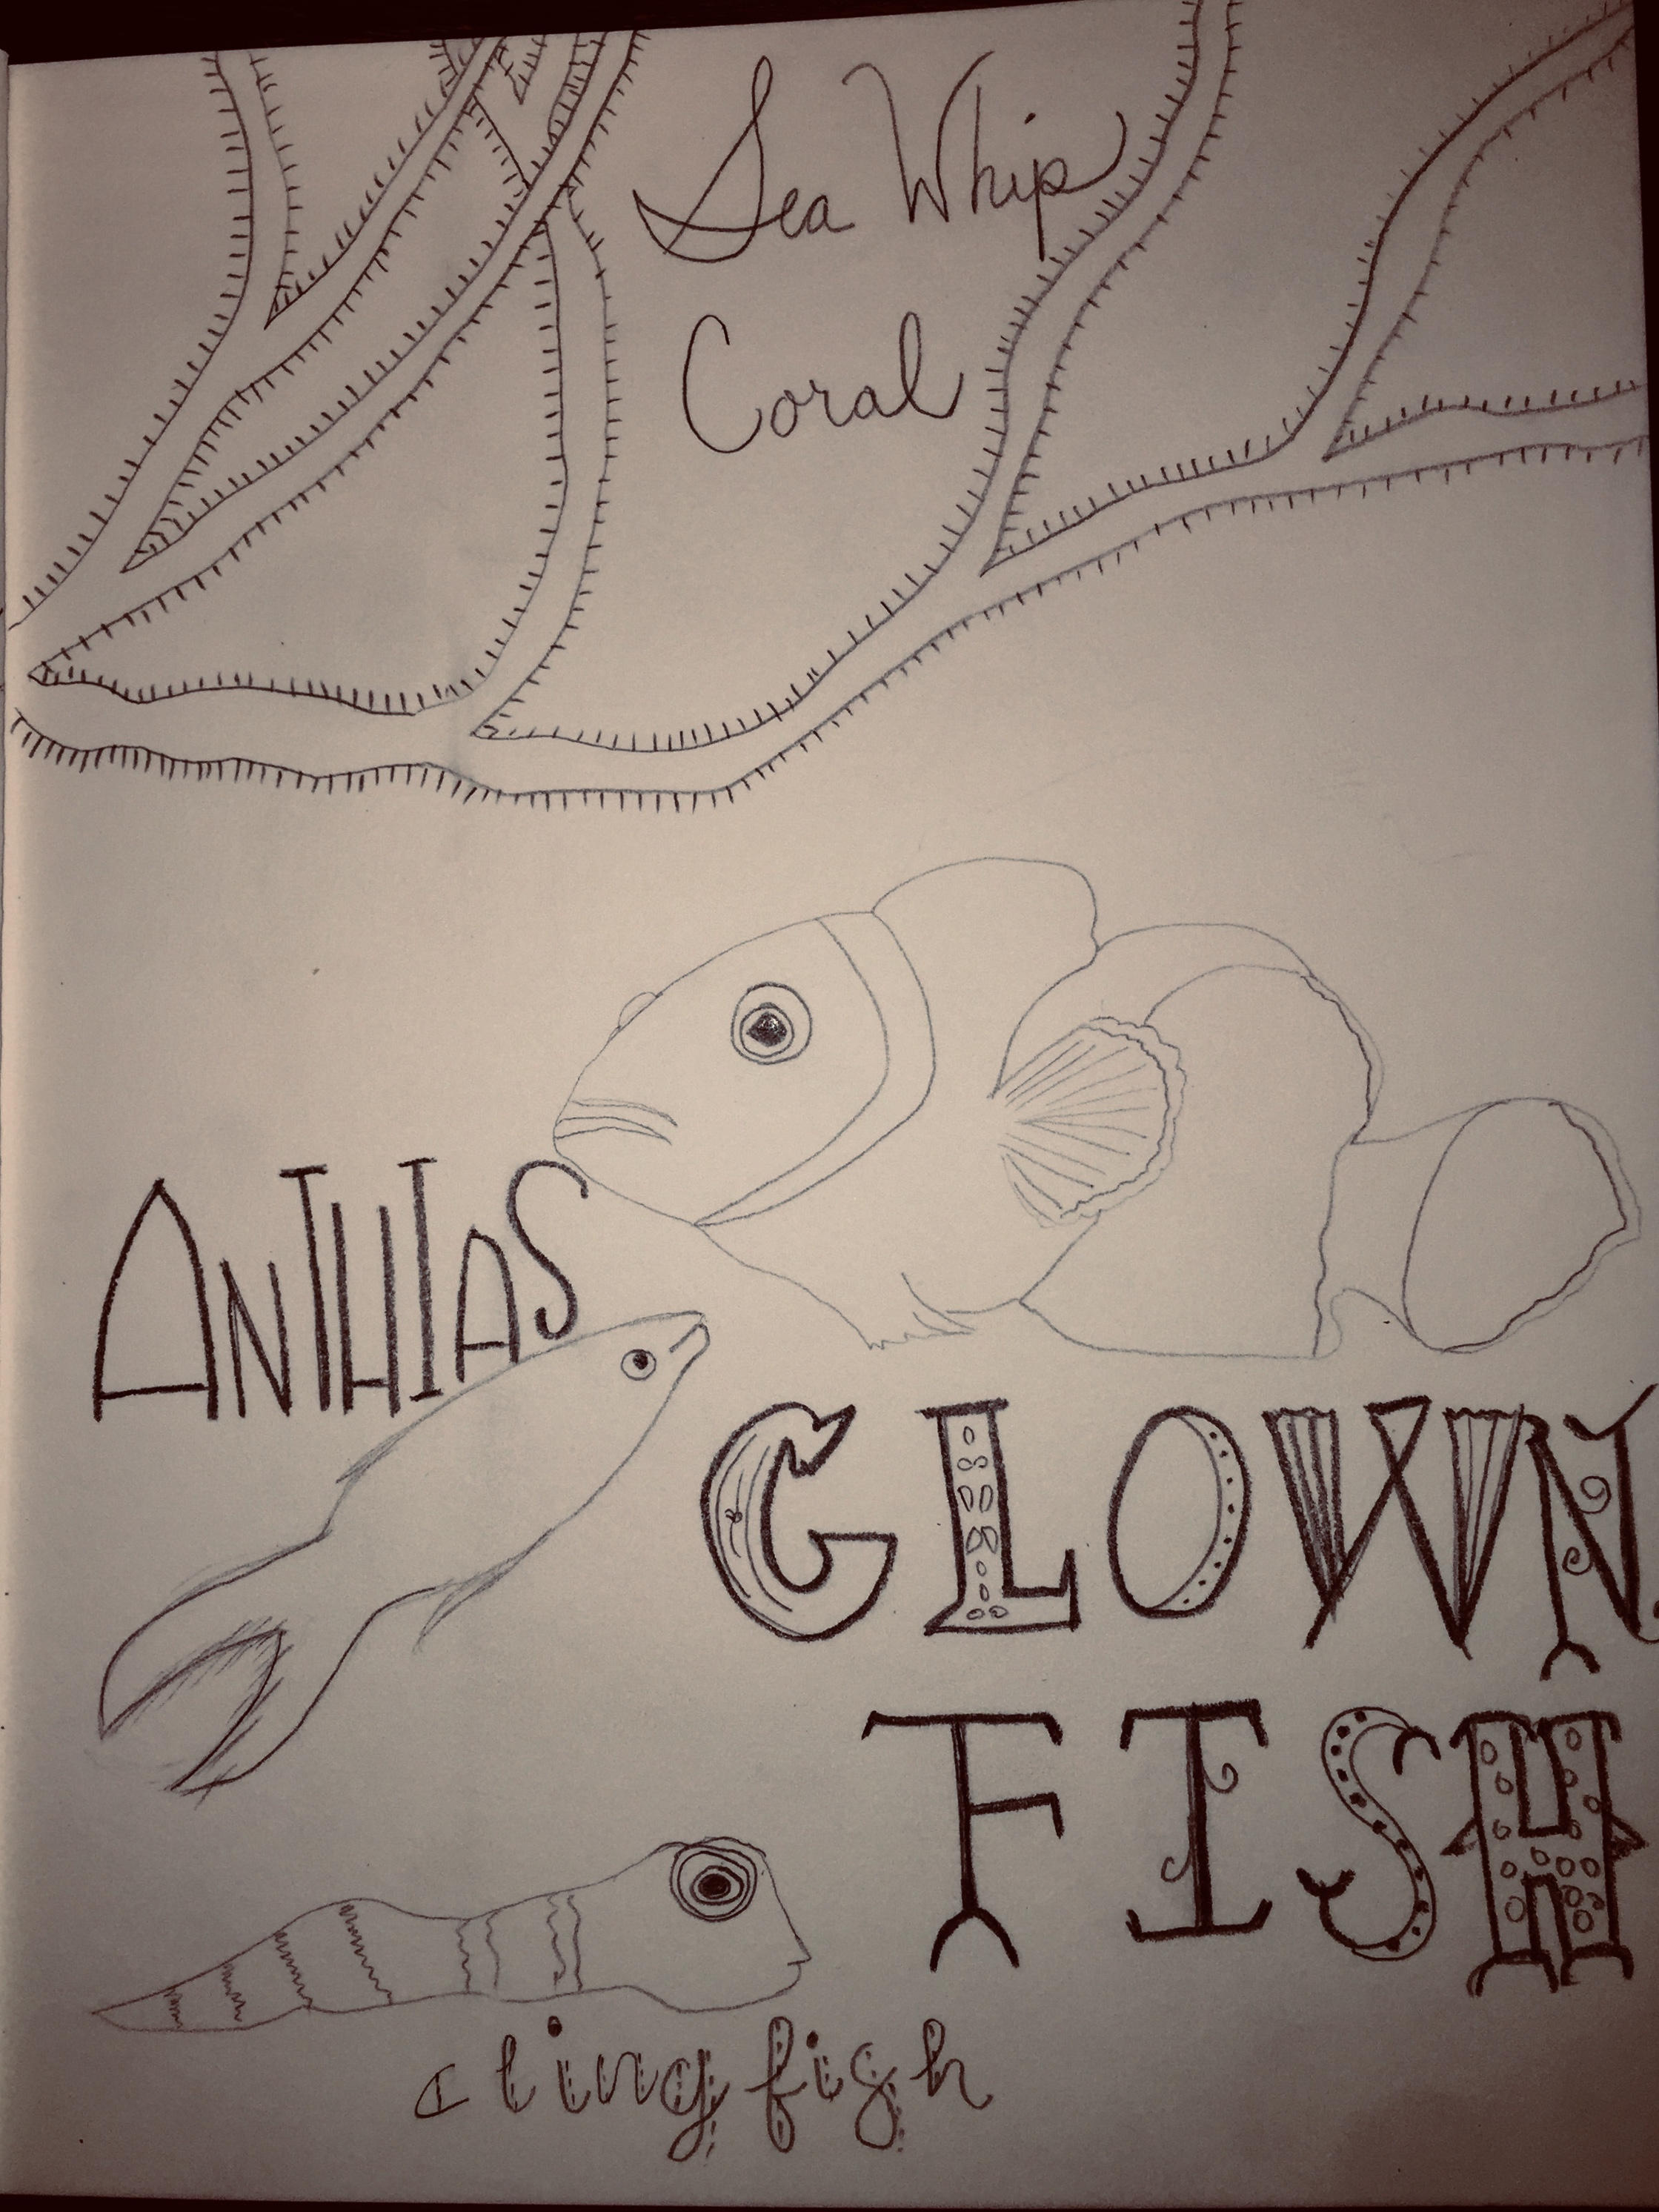 Sea Whip
Coral
ANTHIAS
CLOWN
FISH
clingfish